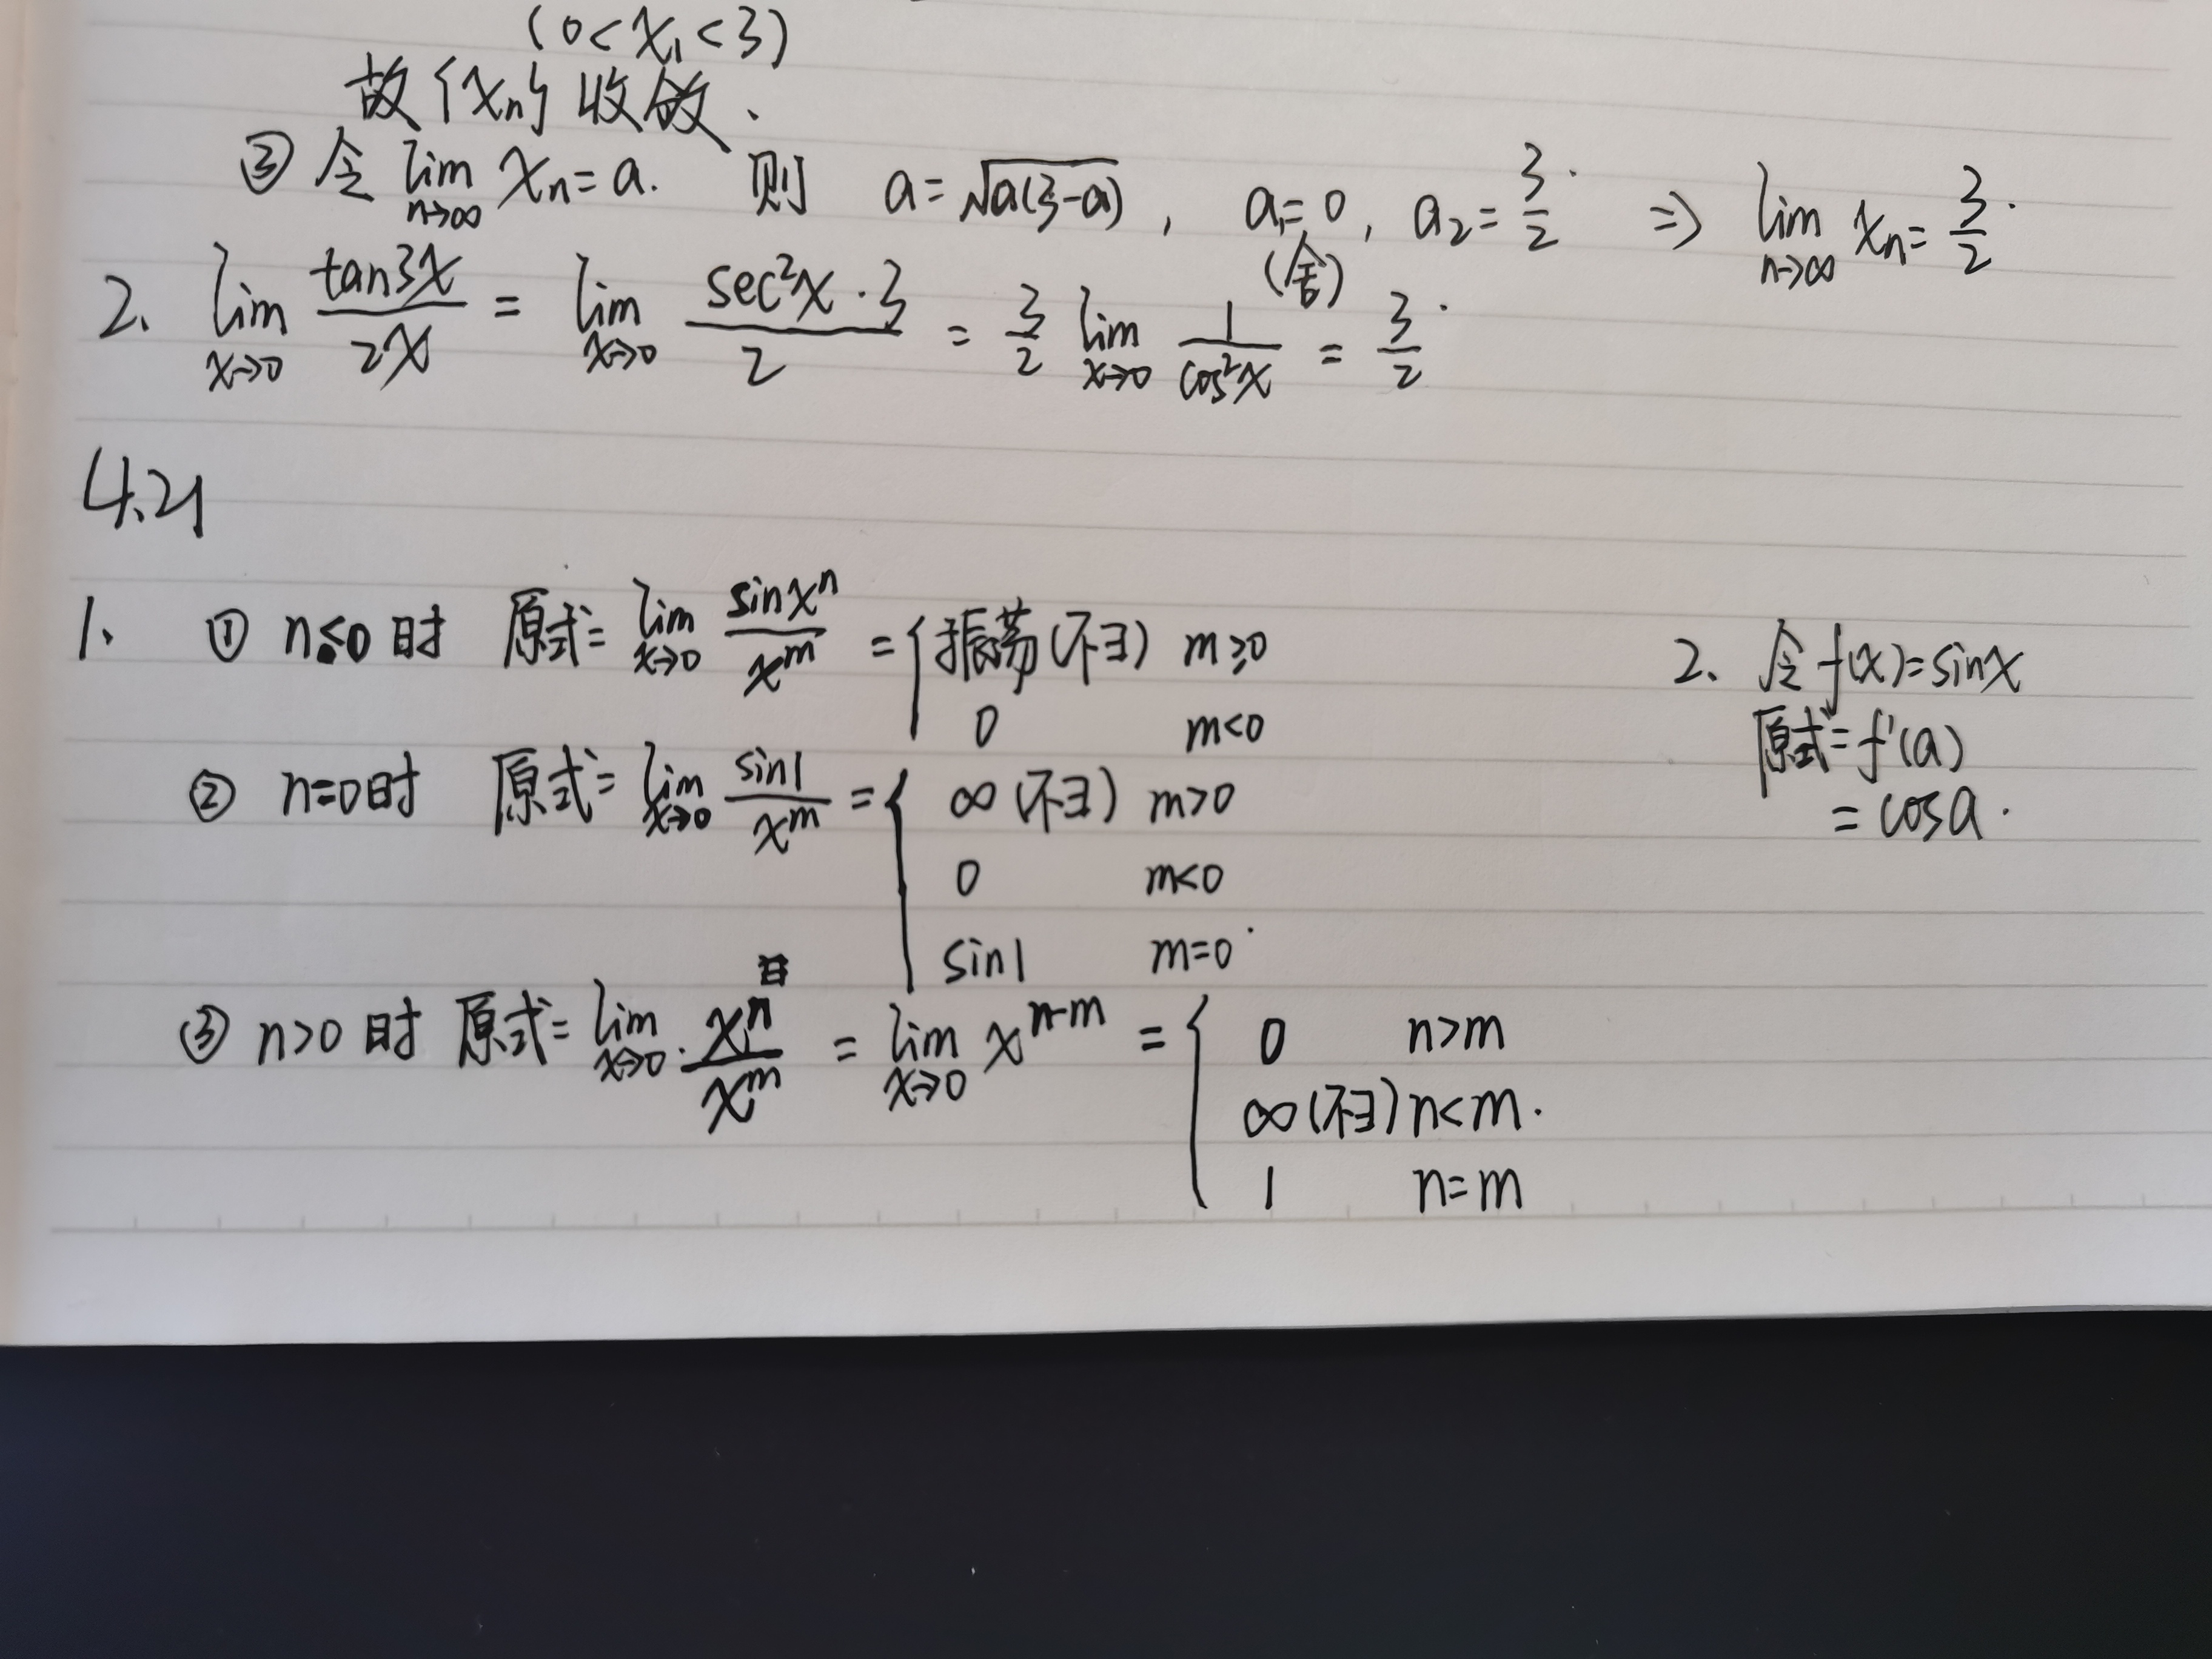 (0<x₁<3)
故{xₙ}收敛、
③ 令 lim_{n→∞} xₙ=a. 则 a=√(a(3-a)) , a₁=0 (舍) , a₂=3/2. ⇒ lim_{n→∞} xₙ=3/2.
2、 lim_{x→0} tan3x/2x = lim_{x→0} sec²x·3/2 = 3/2 lim_{x→0} 1/cos²x = 3/2.
4.21
1、 ① n<0时 原式= lim_{x→0} sinxⁿ/xᵐ = { 振荡(不∃) m≥0
0 m<0
② n=0时 原式= lim_{x→0} sin1/xᵐ = { ∞(不∃) m>0
0 m<0
sin1 m=0.
③ n>0时 原式= lim_{x→0} xⁿ/xᵐ = lim_{x→0} xⁿ⁻ᵐ = { 0 n>m
∞(不∃) n<m.
1 n=m
2、 令f(x)=sinx
原式=f'(a)
=cosa.